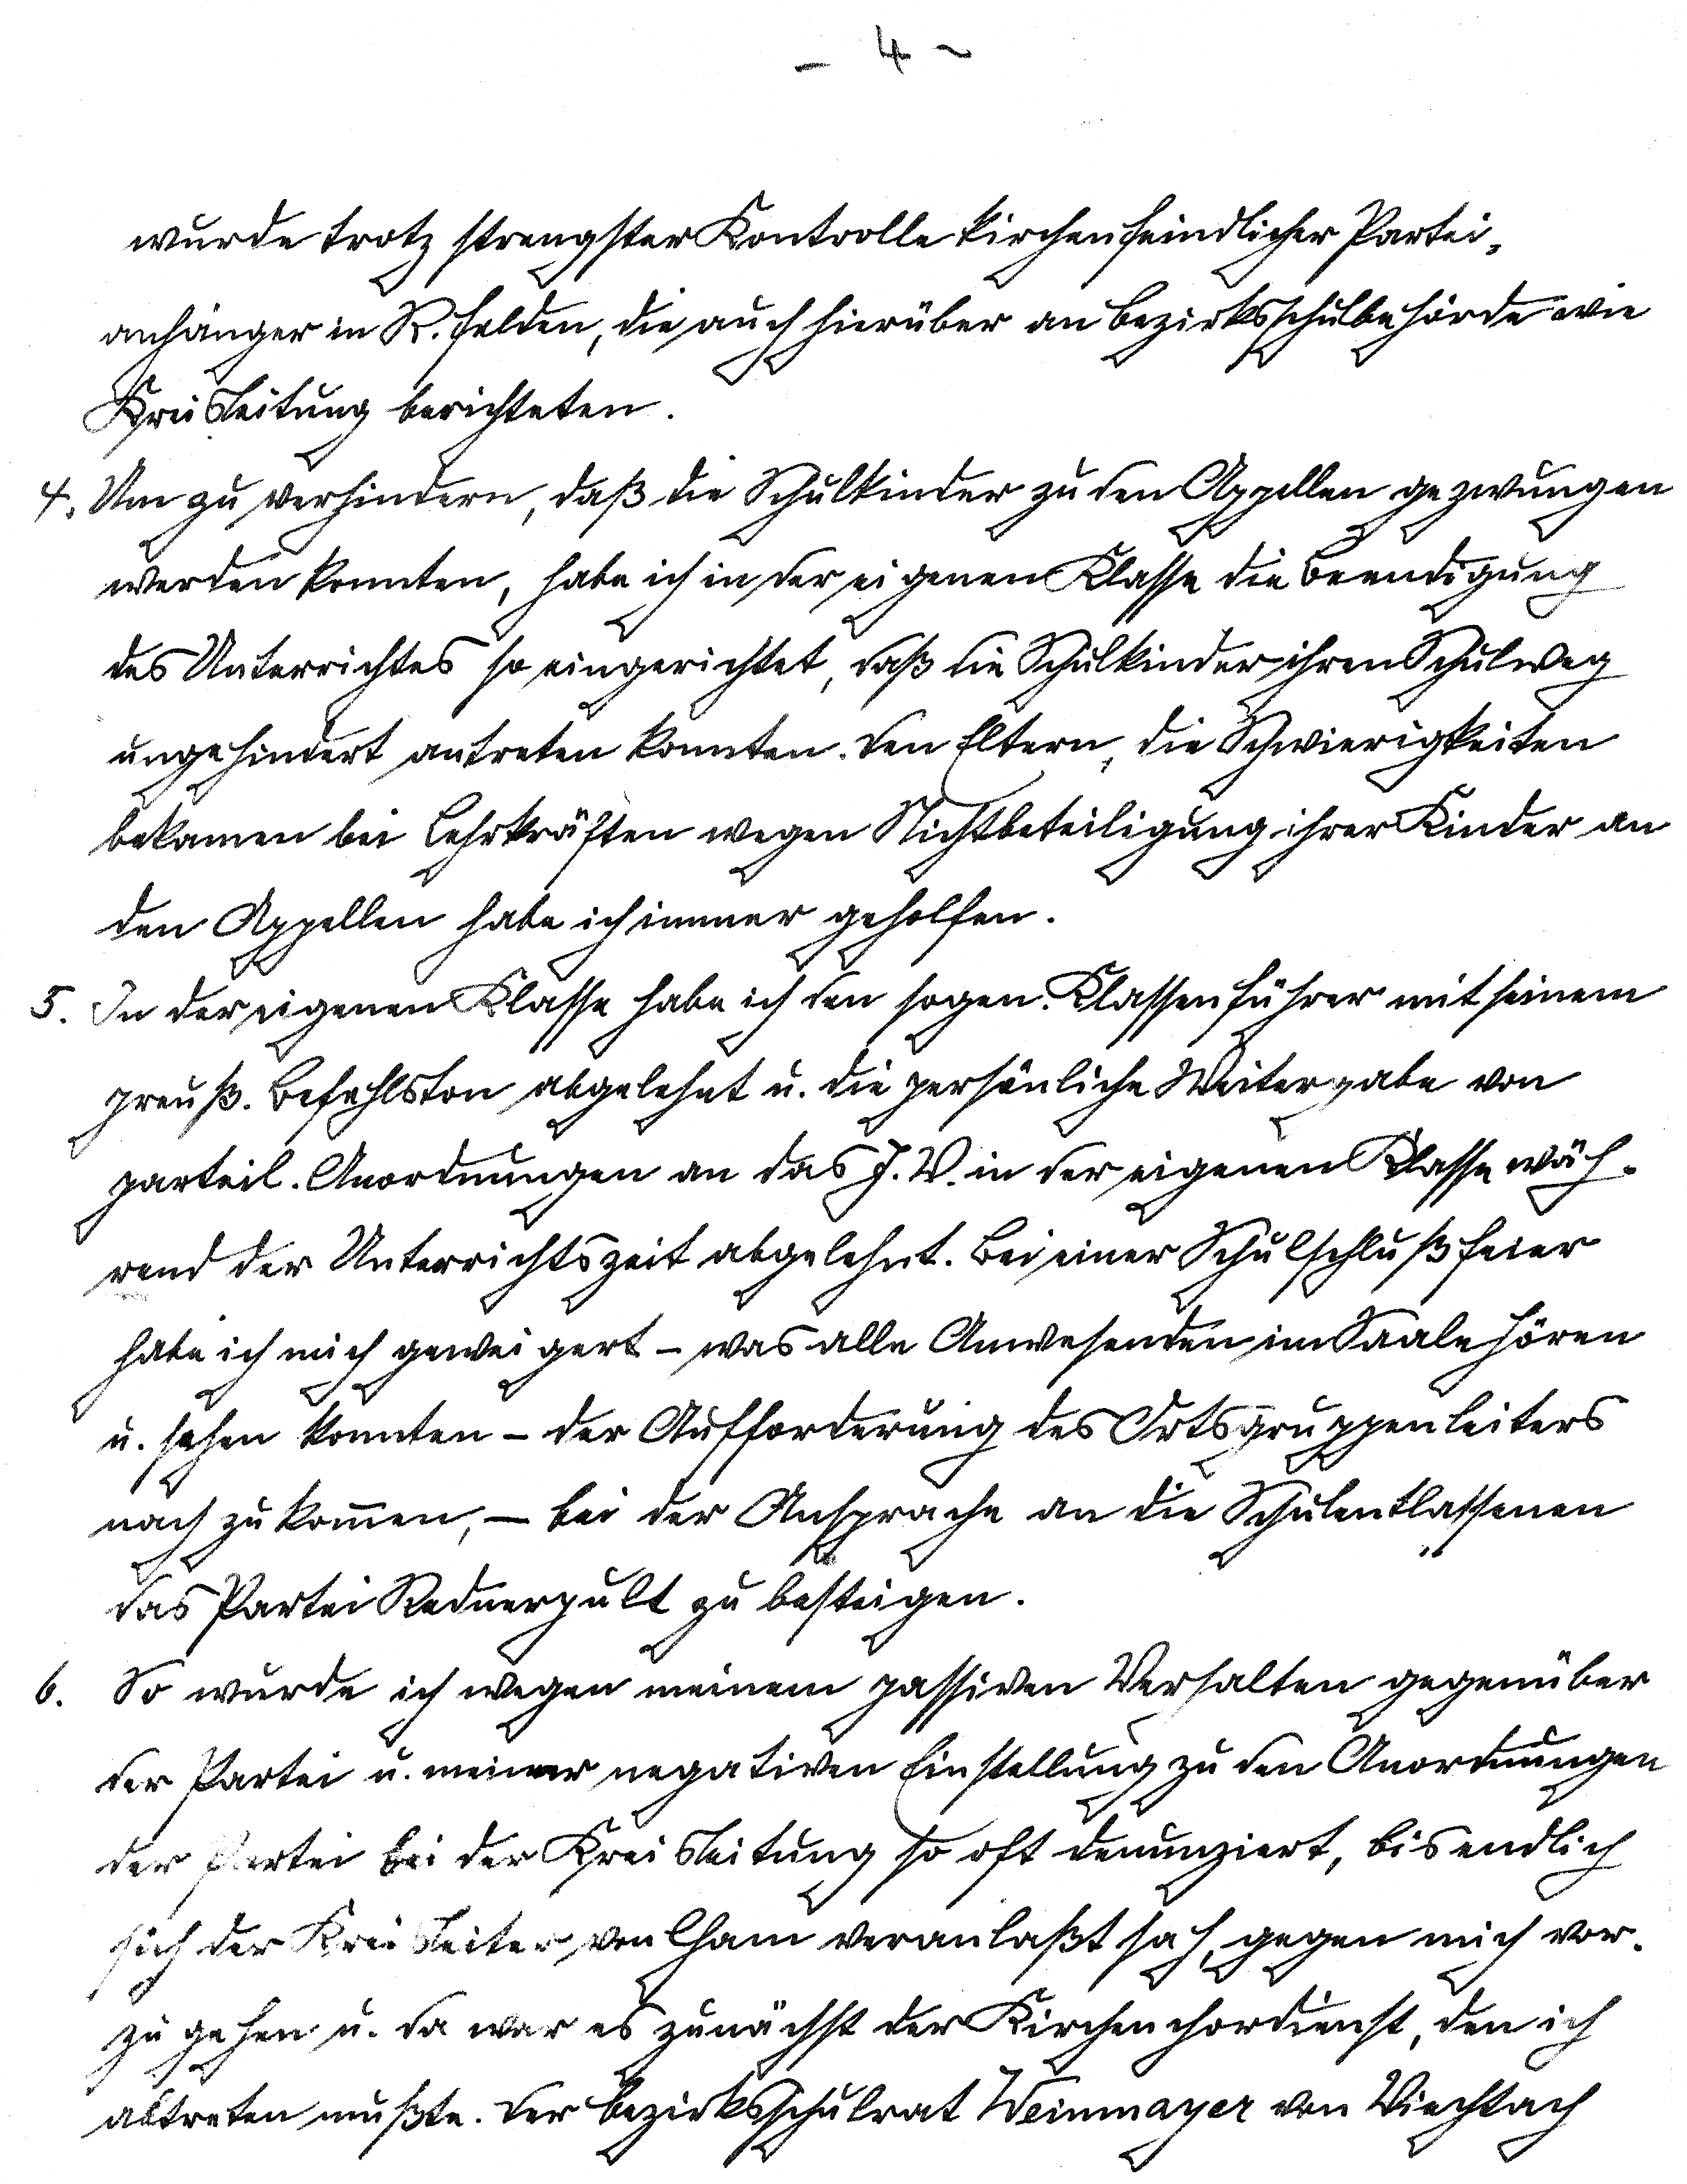 - 4 -
wurde trotz strengster Kontrolle kirchenfeindlicher Partei-
anhänger in R. felden, die auch hierüber an Bezirksschulbehörde wie
Kreisleitung berichteten.
4. Um zu verhindern, daß die Schulkinder zu den Appellen gezwungen
werden konnten, habe ich in der eigenen Klasse die Beendigung
des Unterrichtes so eingerichtet, daß die Schulkinder ihren Schulweg
ungehindert antreten konnten. Den Eltern, die Schwierigkeiten
bekamen bei Lehrkräften wegen Nichtbeteiligung ihrer Kinder an
den Appellen habe ich immer geholfen.
5. In der eigenen Klasse habe ich den sogen. Klassenführer mit seinem
preuß. Befehlston abgelehnt u. die persönliche Weitergabe von
parteil. Anordnungen an das J. V. in der eigenen Klasse wäh-
rend der Unterrichtszeit abgelehnt. Bei einer Schulschlußfeier
habe ich mich geweigert - was alle Anwesenden im Saale hören
u. sehen konnten - der Aufforderung des Ortsgruppenleiters
nachzukom̅en, - bei der Ansprache an die Schulentlassenen
das Partei Rednerpult zu besteigen.
6. So wurde ich wegen meinem passiven Verhalten gegenüber
der Partei u. meiner negativen Einstellung zu den Anordnungen
der Partei bei der Kreisleitung so oft denunziert, bis endlich
sich der Kreisleiter von Cham veranlaßt sah, gegen mich vor-
zugehen u. da war es zunächst der Kirchenchordienst, den ich
abtreten mußte. Der Bezirksschulrat Weinmayer von Viechtach